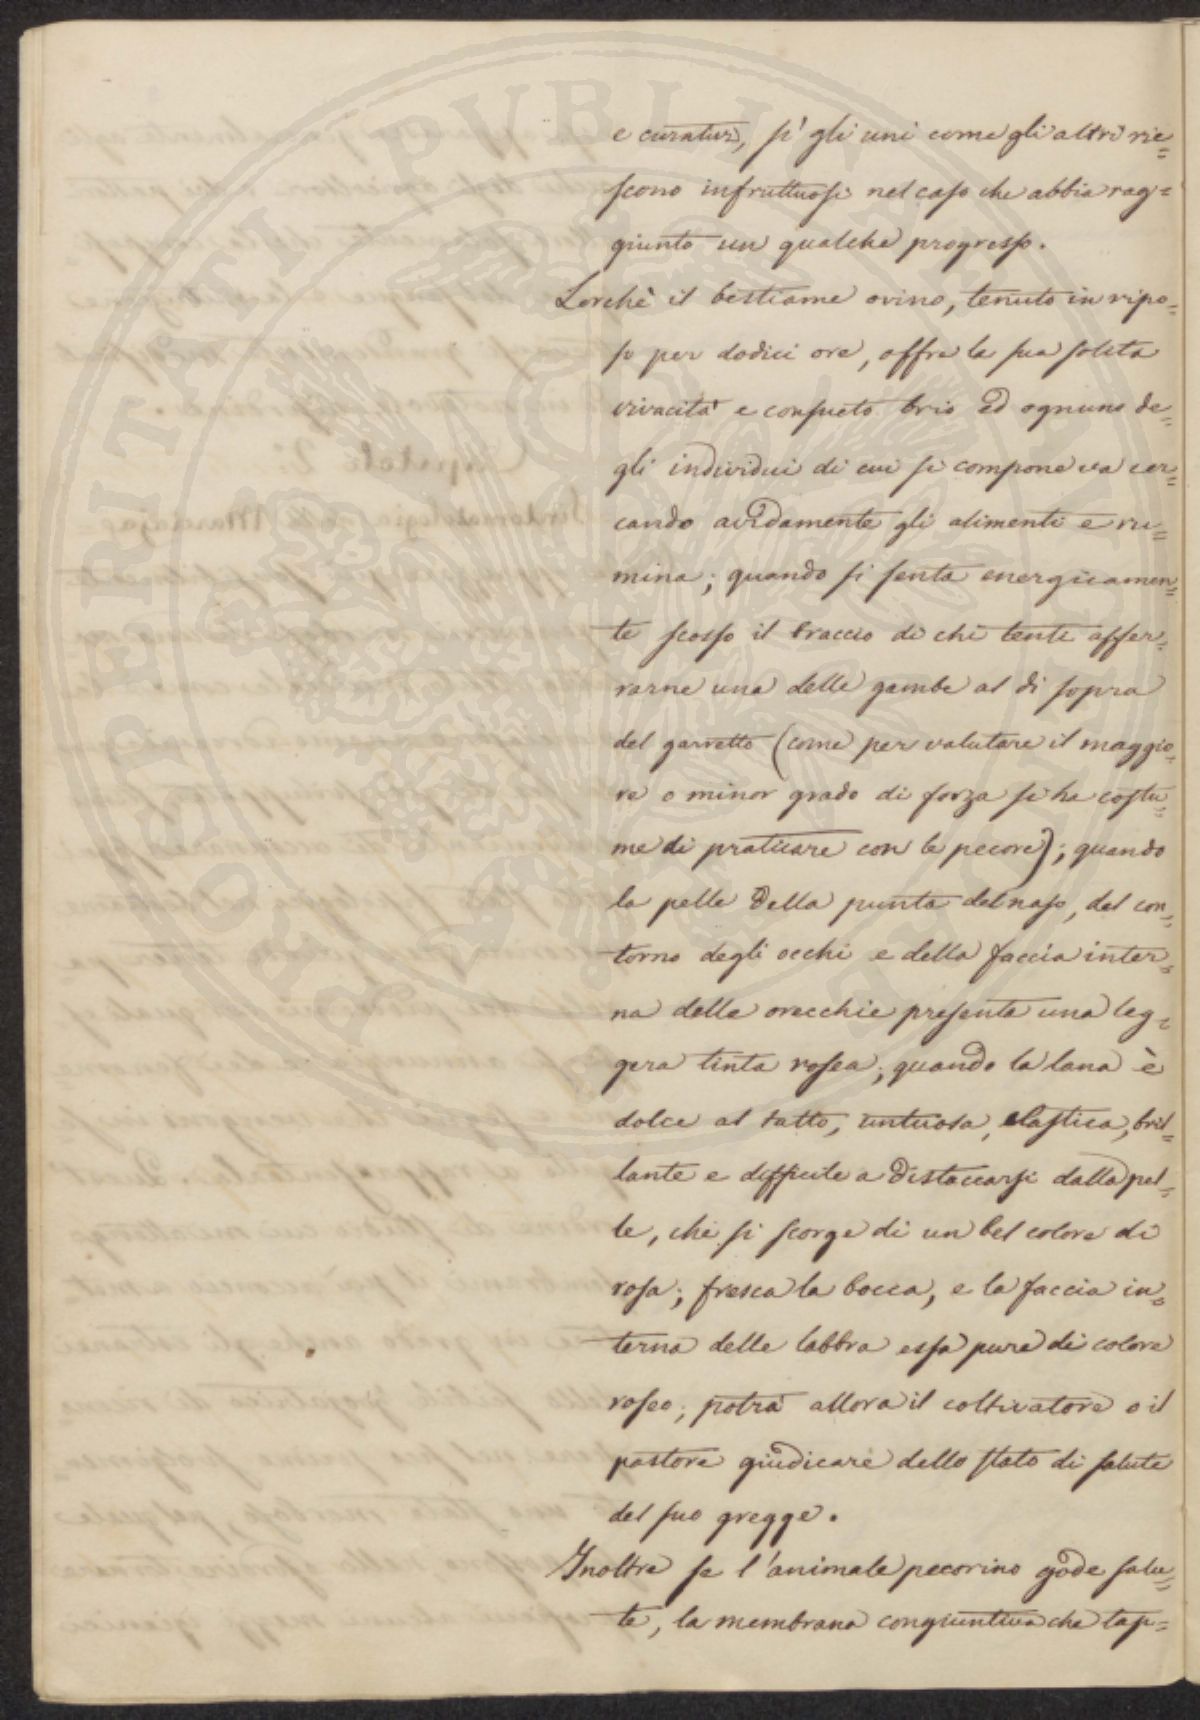 e curativi, sì gli uni come gli altri rie=
scono infruttuosi nel caso che abbia rag=
giunto un qualche progresso.
Lorchè il bestiame ovino, tenuto in ripo=
so per dodici ore, offre la sua solita
vivacità e consueto brio ed ognuno de=
gli individui di cui si compone va cer=
cando avidamente gli alimenti e ru=
mina; quando si senta energicamen=
te scosso il braccio di chi tenti affer=
rarne una delle gambe al di sopra
del garretto (come per valutare il maggio=
re o minor grado di forza si ha costu=
me di praticare con le pecore); quando
la pelle della punta del naso, del con=
torno degli occhi e della faccia inter=
na delle orecchie presenta una leg=
gera tinta rosea; quando la lana è
dolce al tatto, untuosa, elastica, bril=
lante e difficile a distaccarsi dalla pel=
le, che si scorge di un bel colore di
rosa; fresca la bocca, e la faccia in=
terna delle labbra essa pure di colore
roseo; potrà allora il coltivatore o il
pastore giudicare dello stato di salute
del suo gregge.
Inoltre se l'animale pecorino gode salu=
te, la membrana congiuntiva che tap=